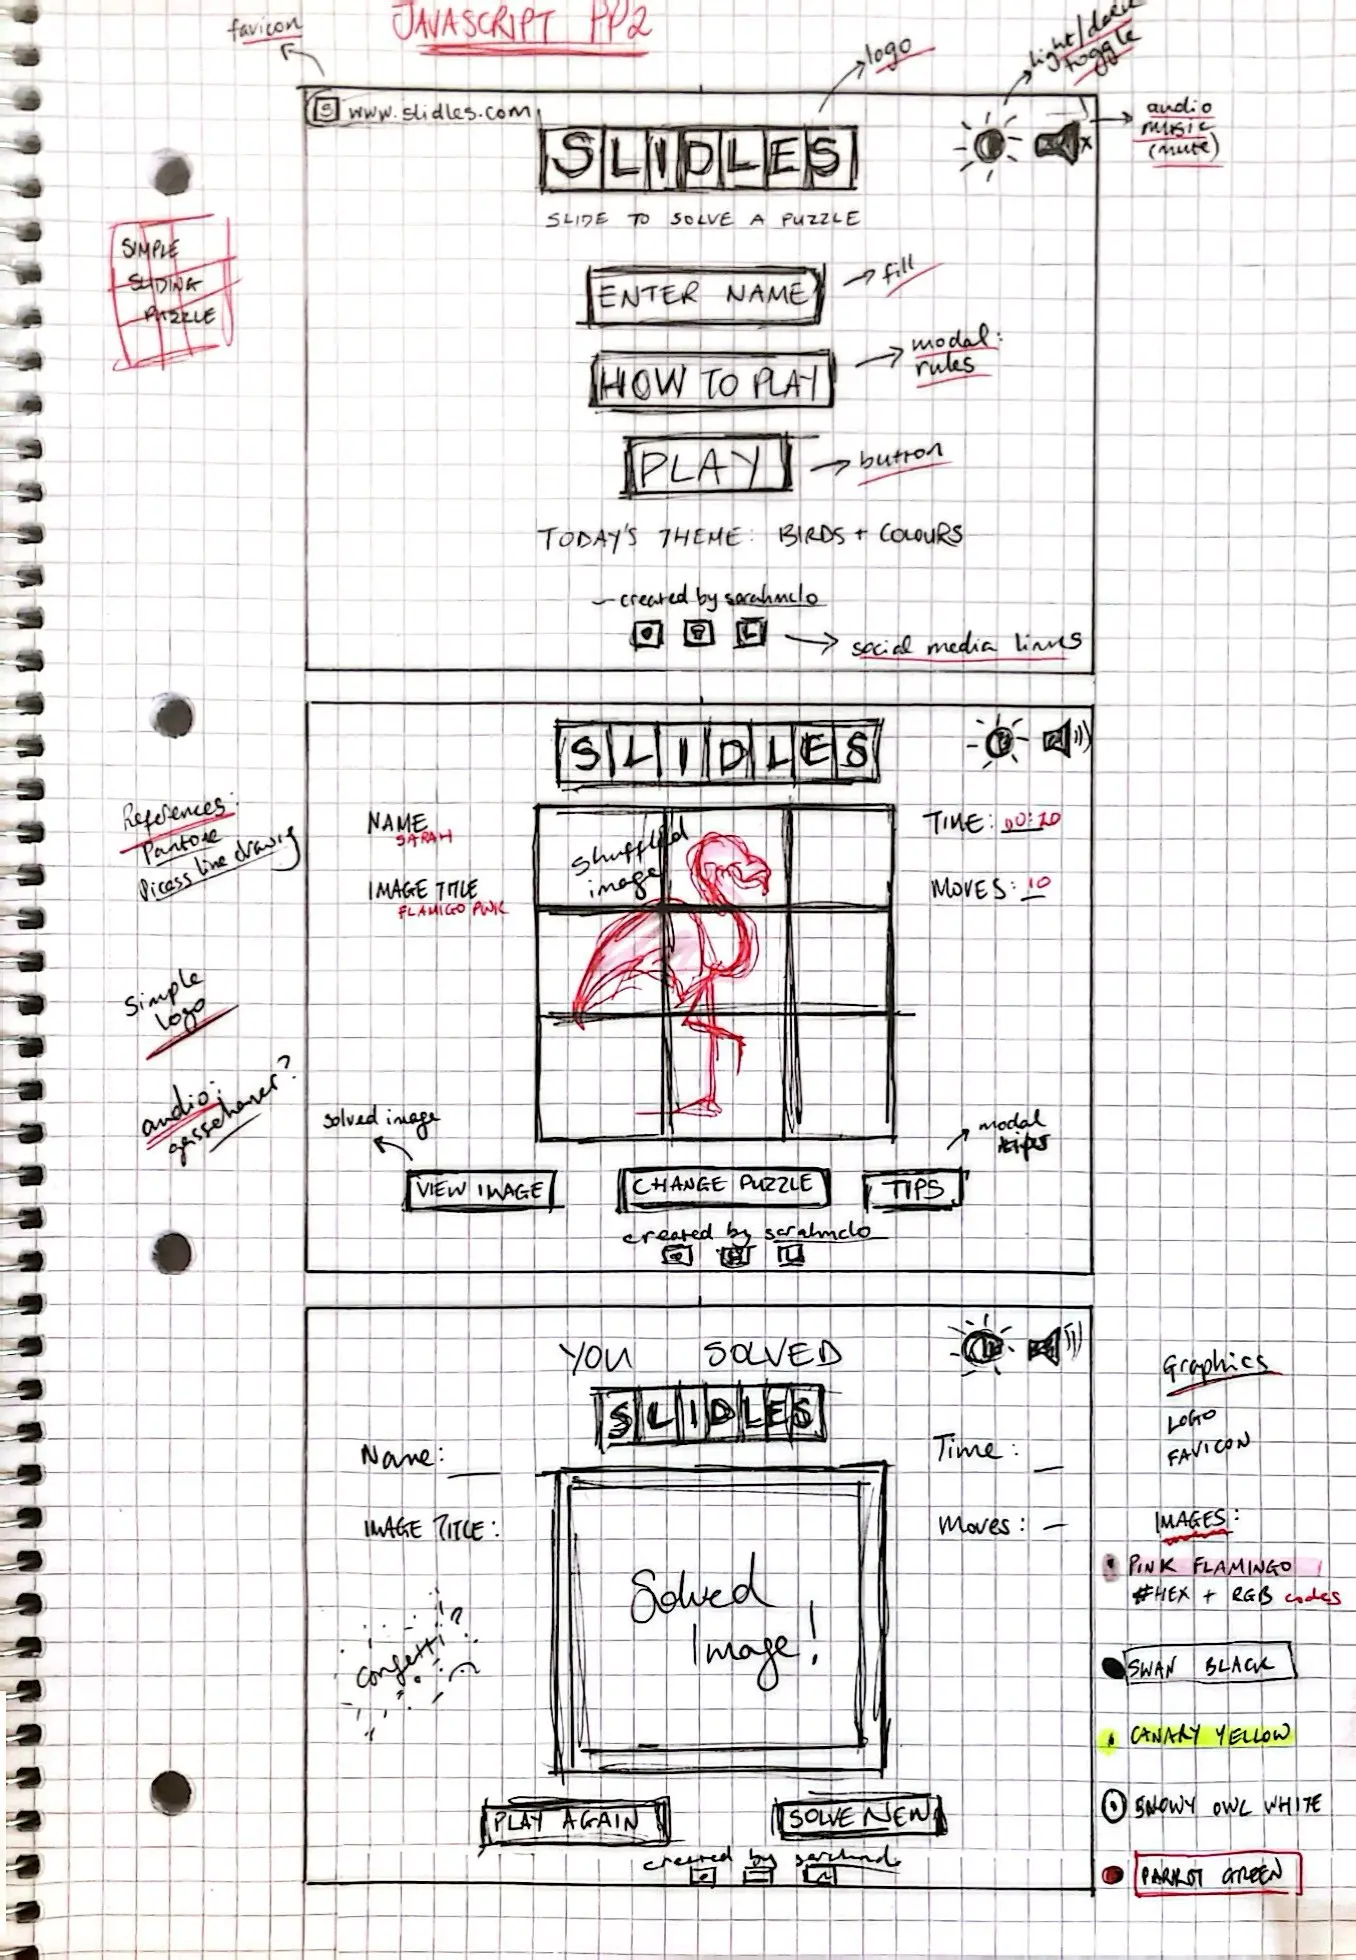 JAVASCRIPT PP2
favicon
logo
light/dark
toggle
S www.slidles.com
audio
music
(mute)
SLIDLES
SLIDE TO SOLVE A PUZZLE
SIMPLE
SLIDING
PUZZLE
ENTER NAME
fill
HOW TO PLAY
modal:
rules
PLAY
button
TODAY'S THEME: BIRDS + COLOURS
created by sarahmclo
social media links
SLIDLES
References:
Pantone
Picass line drawing
NAME
SARAH
IMAGE TITLE
FLAMIGO PINK
shuffled
image
TIME: 00:20
MOVES: 10
simple
logo
audio:
gassenhauer?
solved image
modal
VIEW IMAGE
CHANGE PUZZLE
TIPS
created by sarahmclo
YOU SOLVED
SLIDLES
Name:
IMAGE TITLE:
Time:
Moves:
Solved
Image!
confetti?
PLAY AGAIN
SOLVE NEW
created by sarahmclo
Graphics
LOGO
FAVICON
IMAGES:
PINK FLAMINGO
#HEX + RGB codes
SWAN BLACK
CANARY YELLOW
SNOWY OWL WHITE
PARROT GREEN